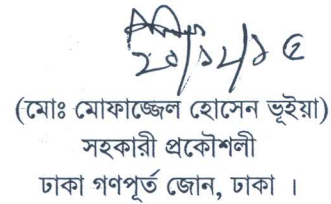 ২০/১২/১৫
(মোঃ মোফাজ্জেল হোসেন ভূইয়া)
সহকারী প্রকৌশলী
ঢাকা গণপূর্ত জোন, ঢাকা ।